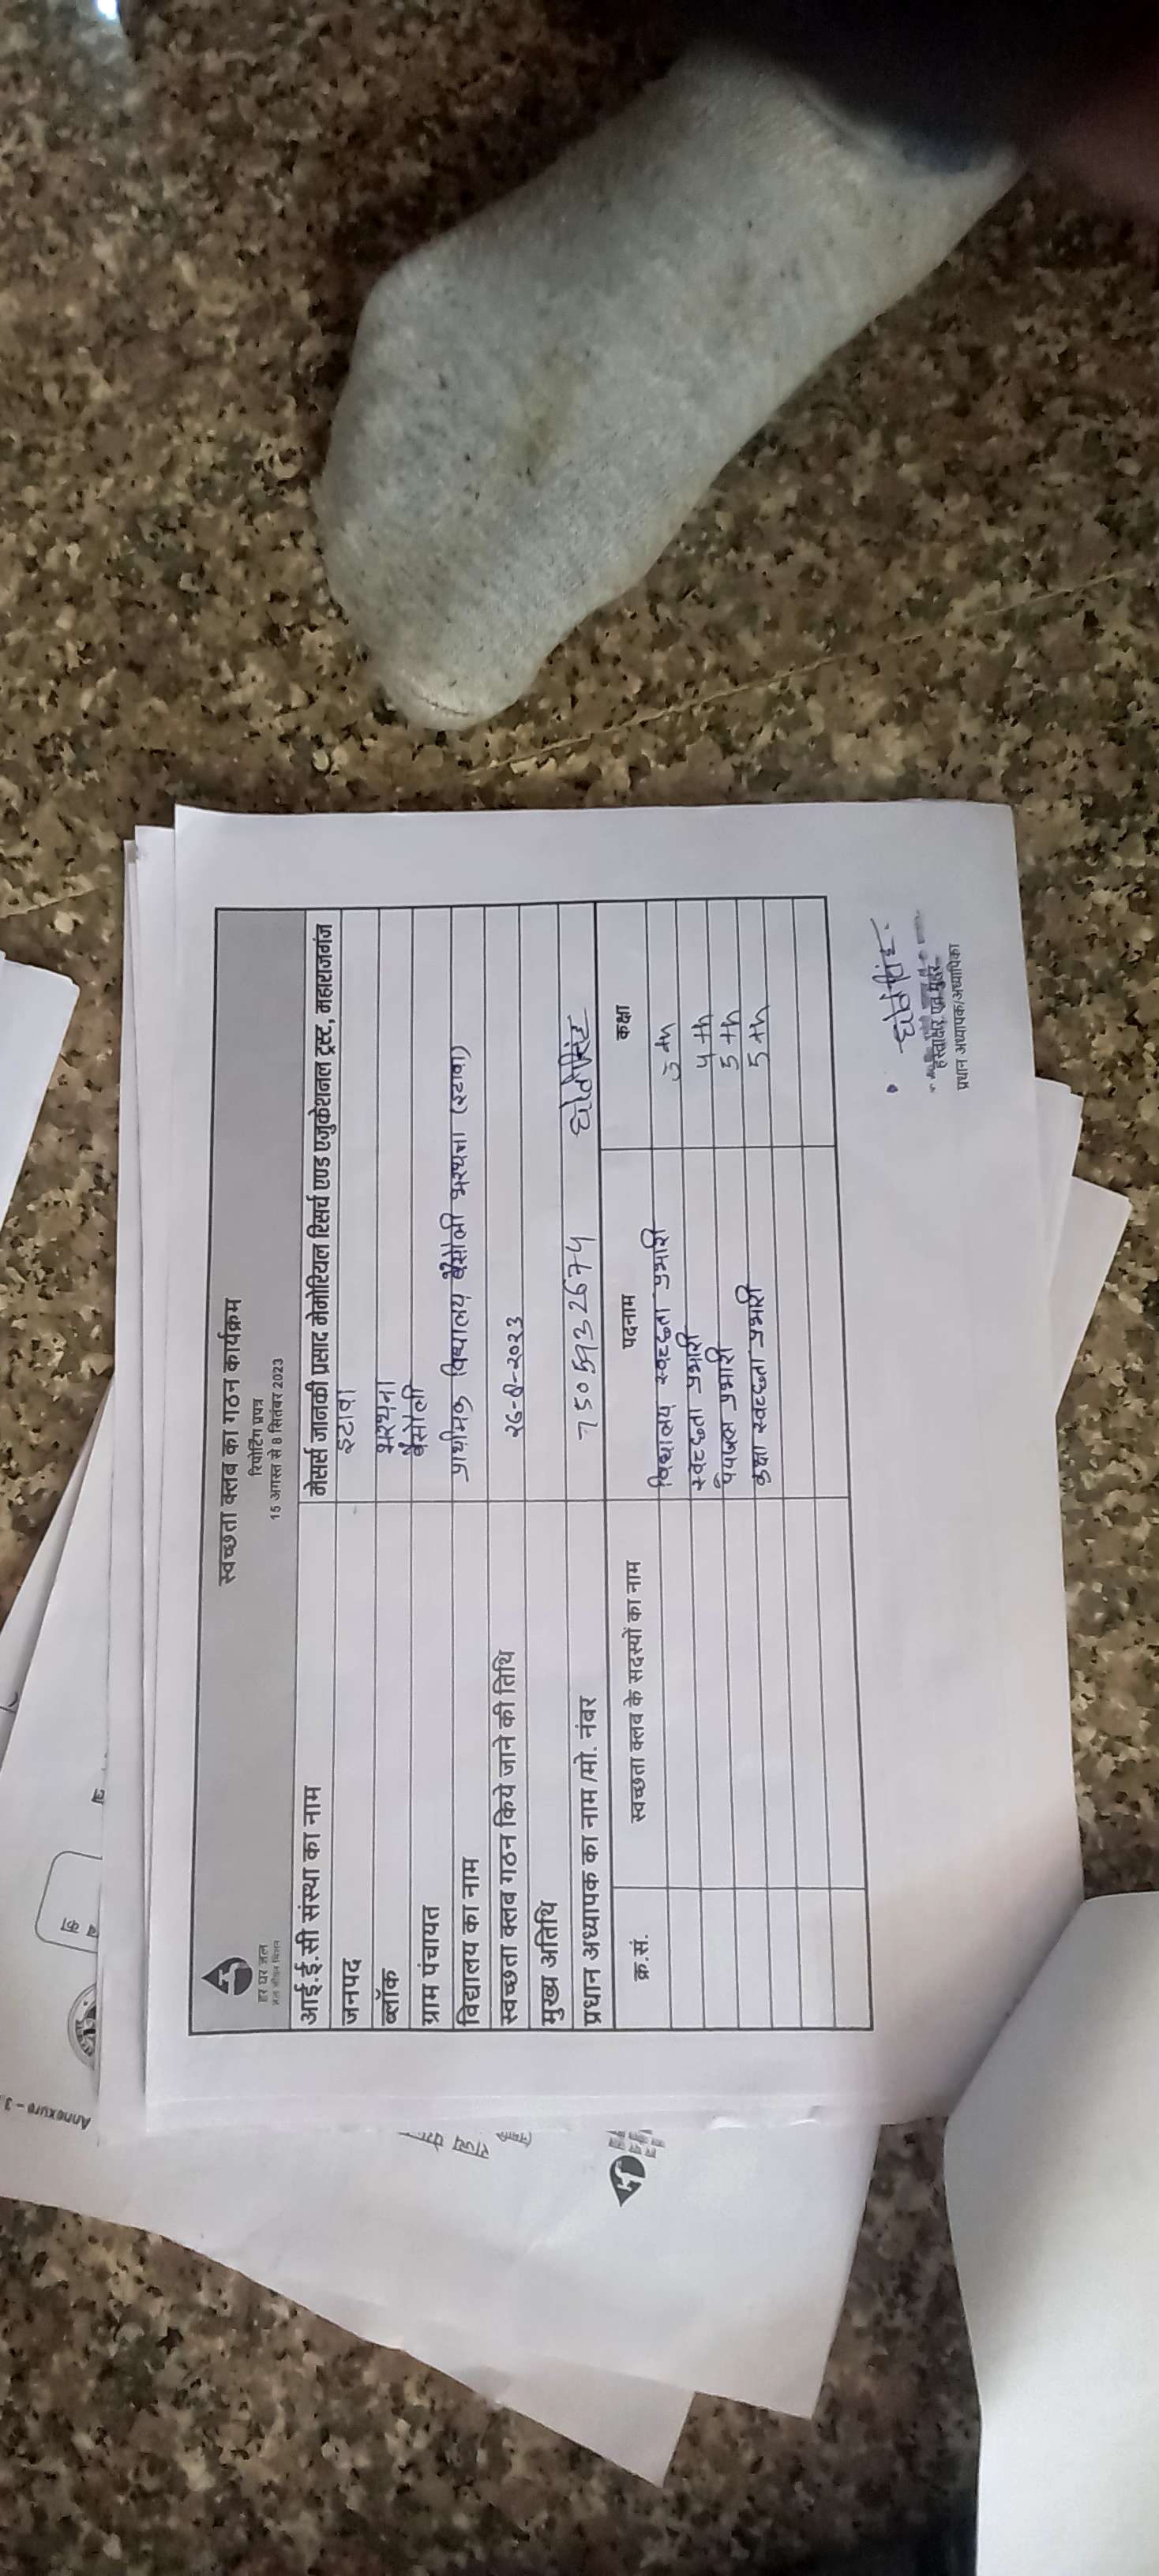 हर घर जल
जल जीवन मिशन
स्वच्छता क्लब का गठन कार्यक्रम
रिपोर्टिंग प्रपत्र
15 अगस्त से 8 सितंबर 2023
आई.ई.सी संस्था का नाम मेसर्स जानकी प्रसाद मेमोरियल रिसर्च एण्ड एजुकेशनल ट्रस्ट, महाराजगंज
जनपद इटावा
ब्लॉक भरथना
ग्राम पंचायत बैसोली
विद्यालय का नाम प्राथमिक विद्यालय बैसोली भरथना (इटावा)
स्वच्छता क्लब गठन किये जाने की तिथि २६-8-२०२३
मुख्य अतिथि
प्रधान अध्यापक का नाम /मो. नंबर
क्र.सं. स्वच्छता क्लब के सदस्यों का नाम पदनाम कक्षा
विद्यालय स्वच्छता प्रभारी
स्वच्छता प्रभारी 4 th
पेयजल प्रभारी 5 th
कक्षा स्वच्छता प्रभारी 5 th
हस्ताक्षर एवं मुहर
प्रधान अध्यापक/अध्यापिका
Annexure - 3